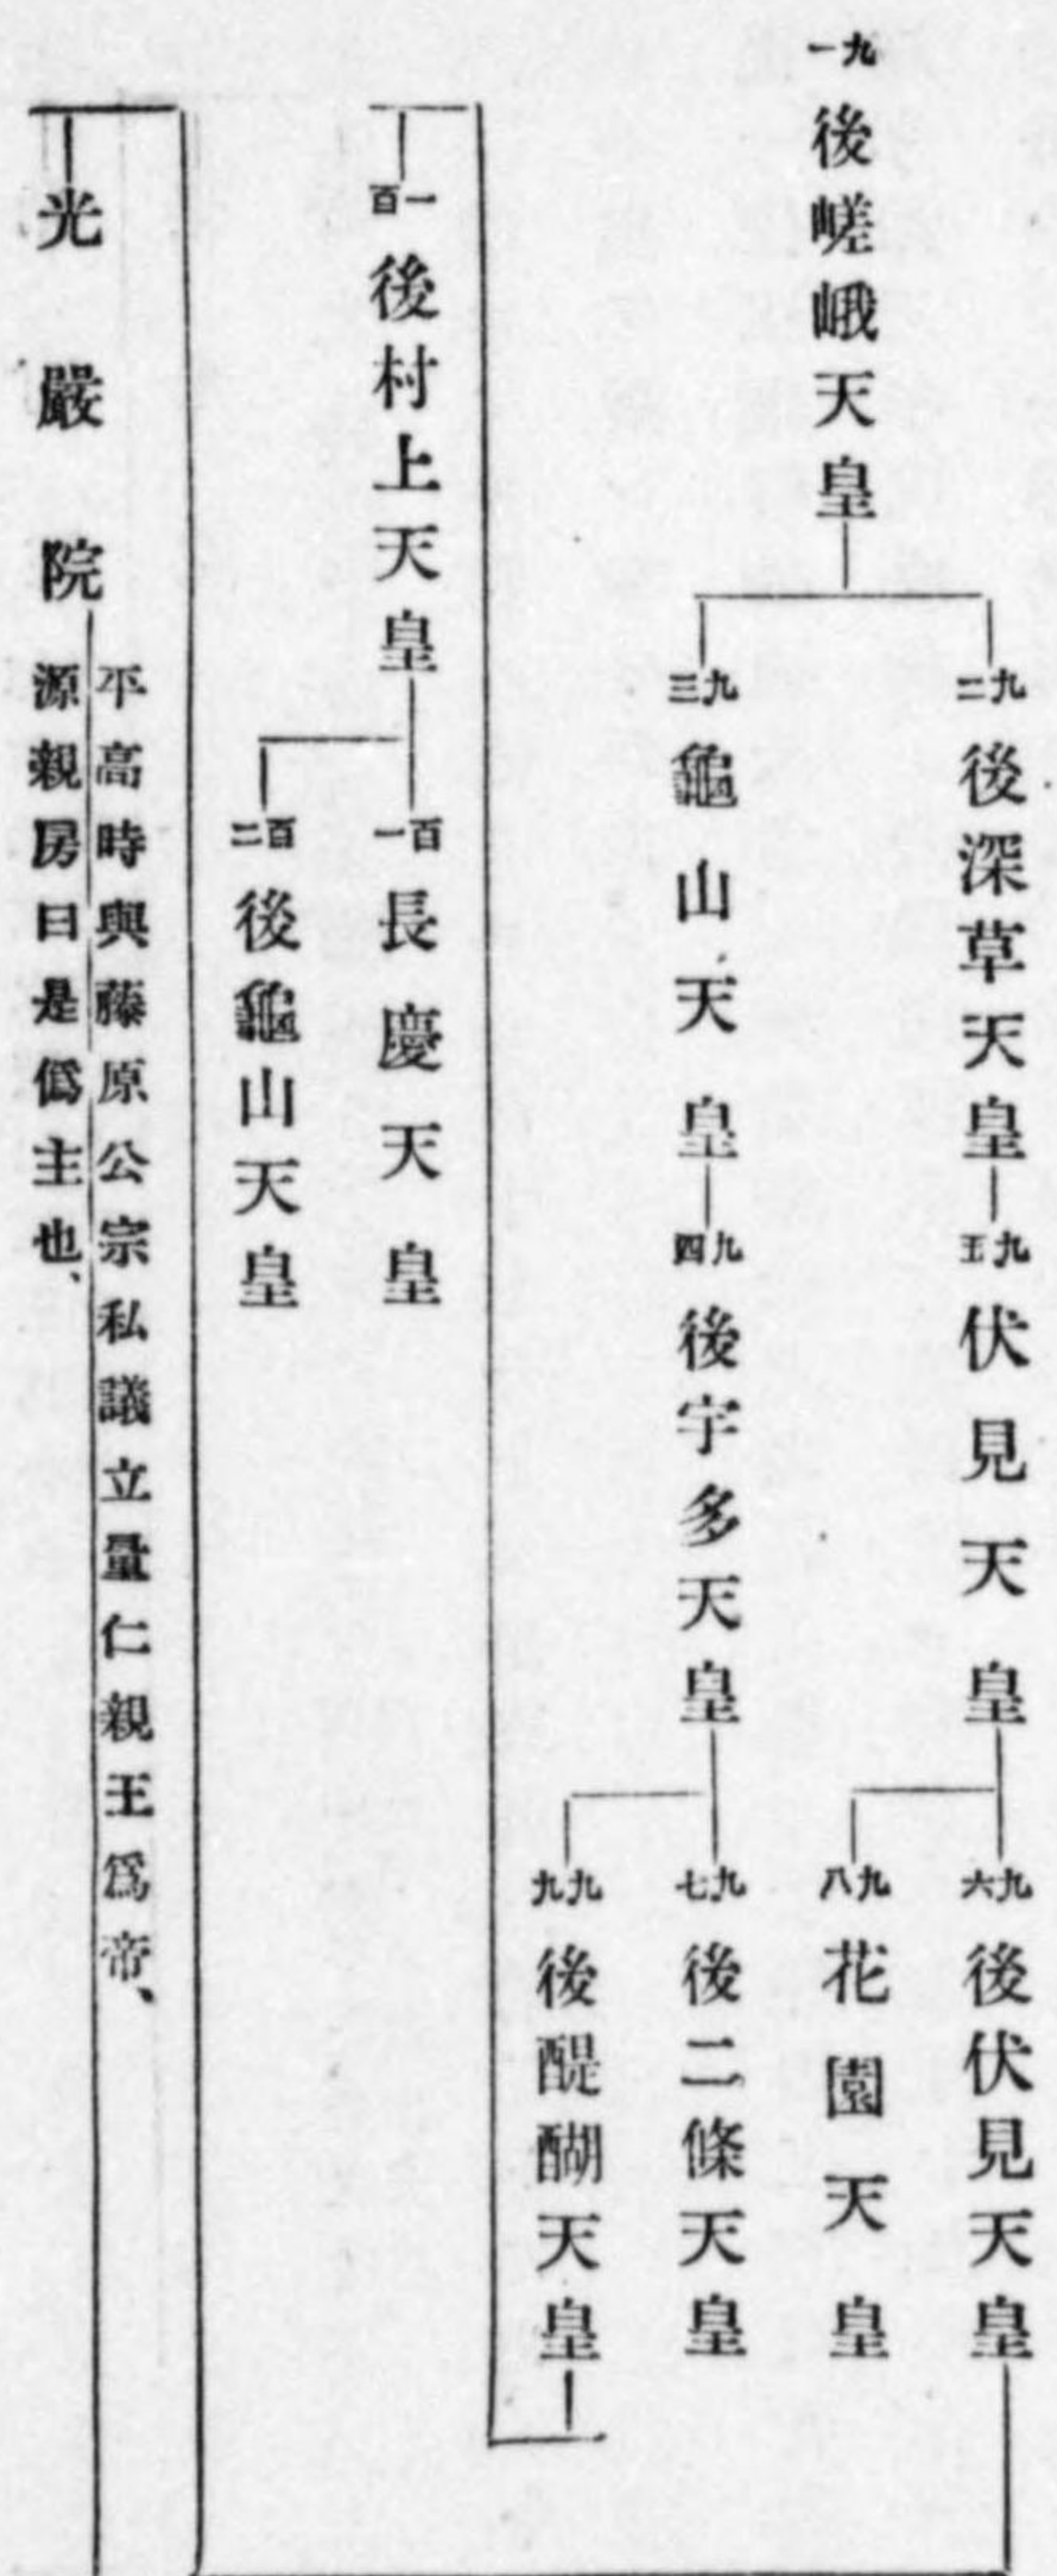 九一
後嵯峨天皇
九二
後深草天皇
九五
伏見天皇
九六
後伏見天皇
九八
花園天皇
九三
龜山天皇
九四
後宇多天皇
九七
後二條天皇
九九
後醍醐天皇
一百
後村上天皇
百一
長慶天皇
百二
後龜山天皇
光嚴院
平高時與藤原公宗私議立量仁親王爲帝、
源親房曰是僞主也、